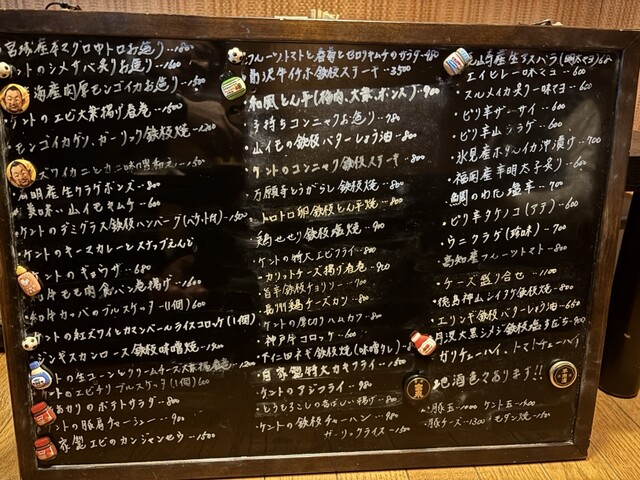 宮城産本マグロ中トロお造り…1800
ケントのシメサバ炙りお造り…
海産肉厚モンゴイカお造り…1500
ケントのエビ大葉揚げ春巻…1600
モンゴイカゲソ、ガーリック鉄板焼…1200
ズワイカニとカニ味噌和え…1500
有明産生クラゲポンズ…800
美味い山イモキムチ…600
ケントのデミグラス鉄板ハンバーグ(バケット付)…1500
ケントのキーマカレーとスナップえんど
ケントのギョウザ…680
牛モモ肉食パン巻揚げ…1600
和牛カッパのブルスケッタ(1個)600
ケントの紅ズワイとカマンベールライスコロッケ(1個)
ジンギスカンロース鉄板味噌焼…
ケントの生コーンとクリームチーズ大葉春巻…1200
ケントのエビチリブルスケッタ(1個)600
おせりのポテトサラダ…800
ケントの豚肩チャーシュー…900
家製エビのカンジャンセウ…1500
フルーツトマトと春菊とゼロリキムチのサラダ…980
前沢牛イチボ鉄板ステーキ…3500
和風とん平(梅肉、大葉、ポンズ)…900
・子持ちコンニャクお造り…900
・山イモの鉄板バターしょう油…800
・ケントのコンニャク鉄板ステーキ…800
・万願寺とうがらし鉄板焼…800
・トロトロ卵鉄板とん平焼…800
・鶏せせり鉄板塩焼…900
・ケントの特大エビフライ…800
・カリットチーズ揚げ春巻…800
・旨辛鉄板チョリソー…700
・長州鶏チーズカツ…800
・ケントの厚切りハムカツ…800
・神戸牛コロッケ…600
・千住ネギ鉄板焼(味噌タレ)…
・自家製特大カキフライ…
・ケントのアジフライ…980
・とうもろこしの香ばしい揚げ…800
・ケントの鉄板チャーハン…980
ガーリックライス…1500
山崎産生アスパラ(明太マヨ)680
・エイヒレー味マヨ…600
・スルメイカ炙り一味マヨ…600
・ピリ辛ザーサイ…600
・ピリ辛山シラゲ…600
・氷見産ホタルイカ沖漬け…700
・福岡産辛明太子炙り…600
・鯛のわた塩辛…700
・ピリ辛タケノコ(アテ)…600
・ウニクラゲ(珍味)…700
・高知産フルーツトマト…800
・ケーズ盛り合せ…1100
・徳島神山シイタケ鉄板焼…800
・エリンギ鉄板バターしょう油…650
・丹波大黒シメジ鉄板塩まぶち…900
ガリチューハイ、トマトチューハイ
地酒色々あります!!
豚玉…1000 ケント玉…1600
豚チーズ…1300 モダン焼…1500